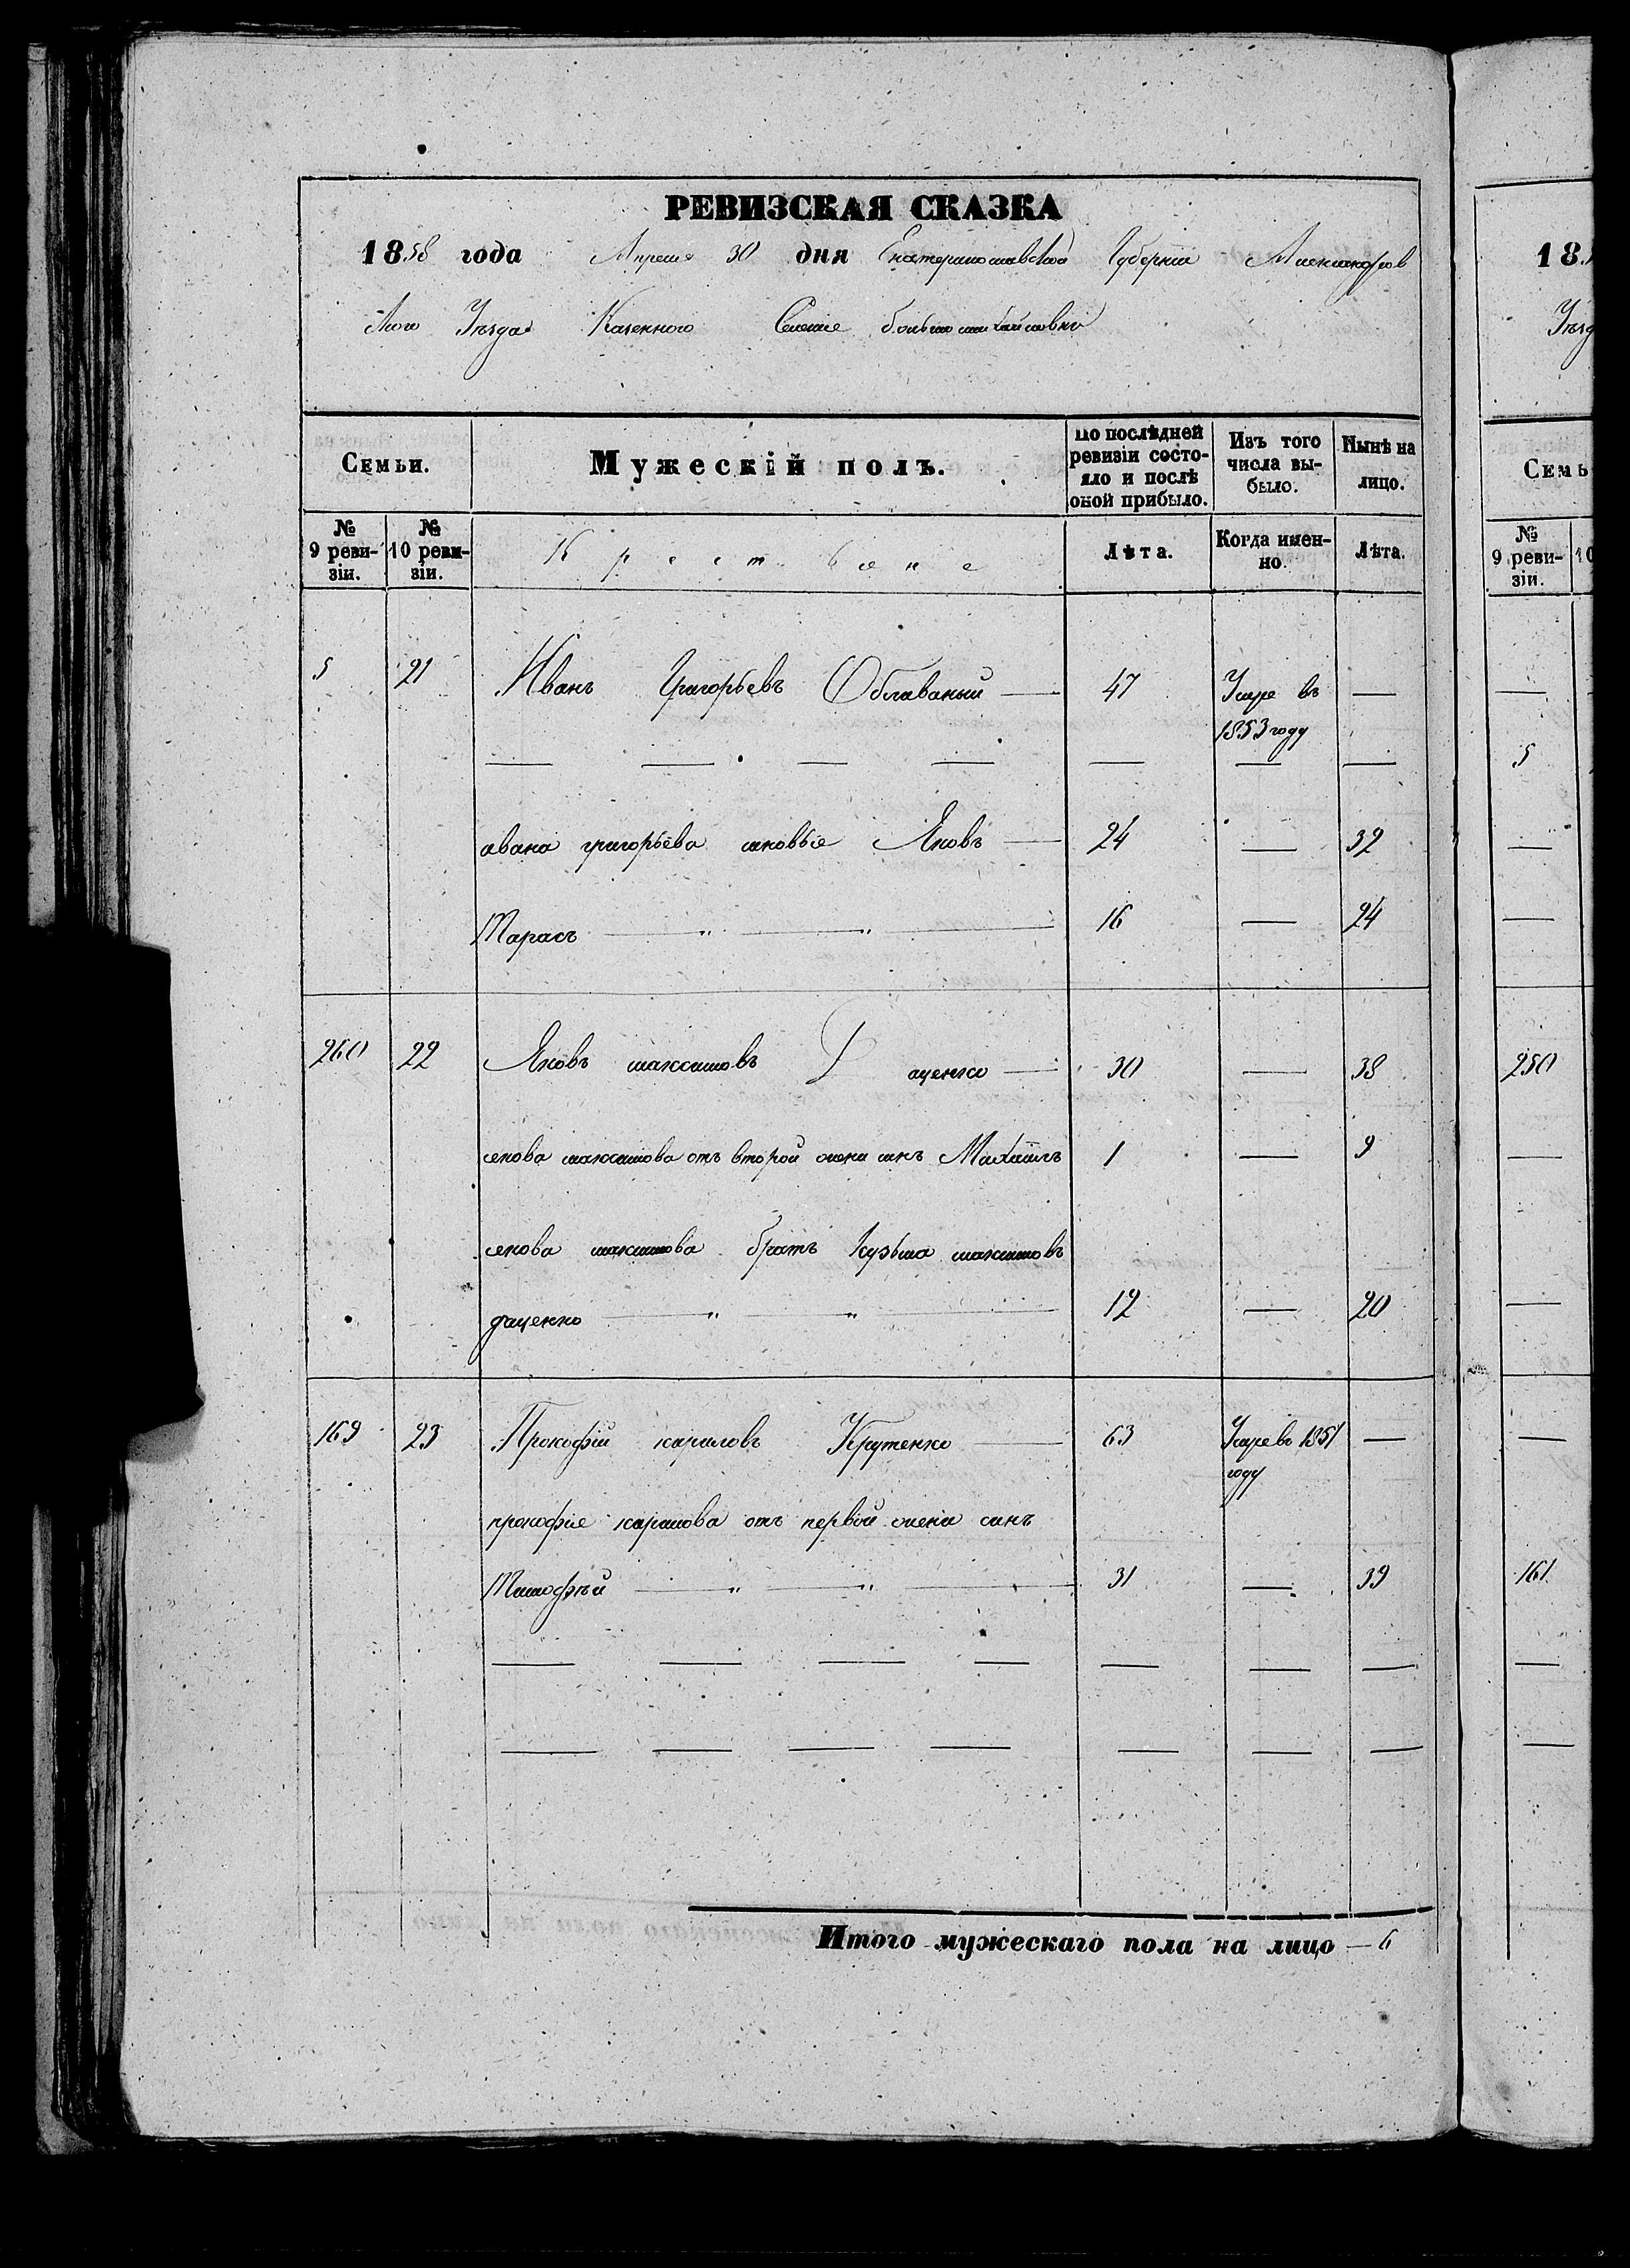 РЕВИЗСКАЯ СКАЗКА
1858 года Апреля 30 дня Екатеринославской Губернии Александров
ского Уѣзда Казенного Селение большомихайловки
Семьи.
Мужескій полъ.
По послѣдней ревизіи состояло и послѣ оной прибыло.
Изъ того числа выбыло.
Нынѣ на лицо.
№ 9 ревизіи.
№ 10 ревизіи.
Крестьене
Лѣта.
Когда именно.
Лѣта.
5 21 Иванъ Григорьевъ Облаваный 47 Умре въ —
1853 году
ивана григорьева сыновье Яковъ 24 — 32
Тарасъ — „ — „ — 16 — 24
260 22 Яковъ максимовъ Даценко — 30 — 38
екова максимова отъ второй жени синъ Михаилъ 1 — 9
екова максимова братъ Кузьма максимовъ
даценко — „ — „ — 12 — 20
169 23 Прокофій кариловъ Крутенко — 63 Умре въ 1851 —
году
прокофие карилова отъ первой жени синъ
Тимофѣй — „ — „ — 31 — 39
Итого мужескаго пола на лицо — 6
18
Уѣзд
Семь
№ 9 ревизіи.
10
5
250
161